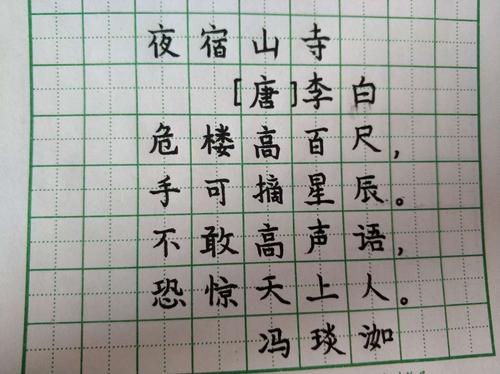 夜宿山寺
[唐]李白
危楼高百尺,
手可摘星辰。
不敢高声语,
恐惊天上人。
冯琰洳